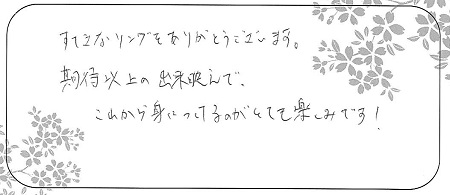 すてきなリングをありがとうございます。
期待以上の出来映えで、
これから身につけるのがとても楽しみです！